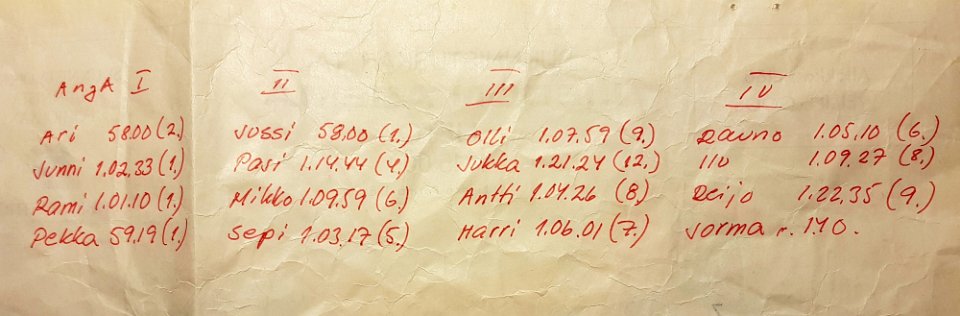 AngA I II III IV
Ari 58.00 (2.) Jussi 58.00 (1.) Olli 1.07.59 (9.) Rauno 1.05.10 (6.)
Junni 1.02.33 (1.) Pasi 1.14.44 (4.) Jukka 1.21.24 (12.) Iiv 1.09.27 (8.)
Rami 1.01.10 (1.) Mikko 1.09.59 (6.) Antti 1.04.26 (8.) Reijo 1.22.35 (9.)
Pekka 59.19 (1.) Sepi 1.03.17 (5.) Harri 1.06.01 (7.) Jorma n. 1.40.